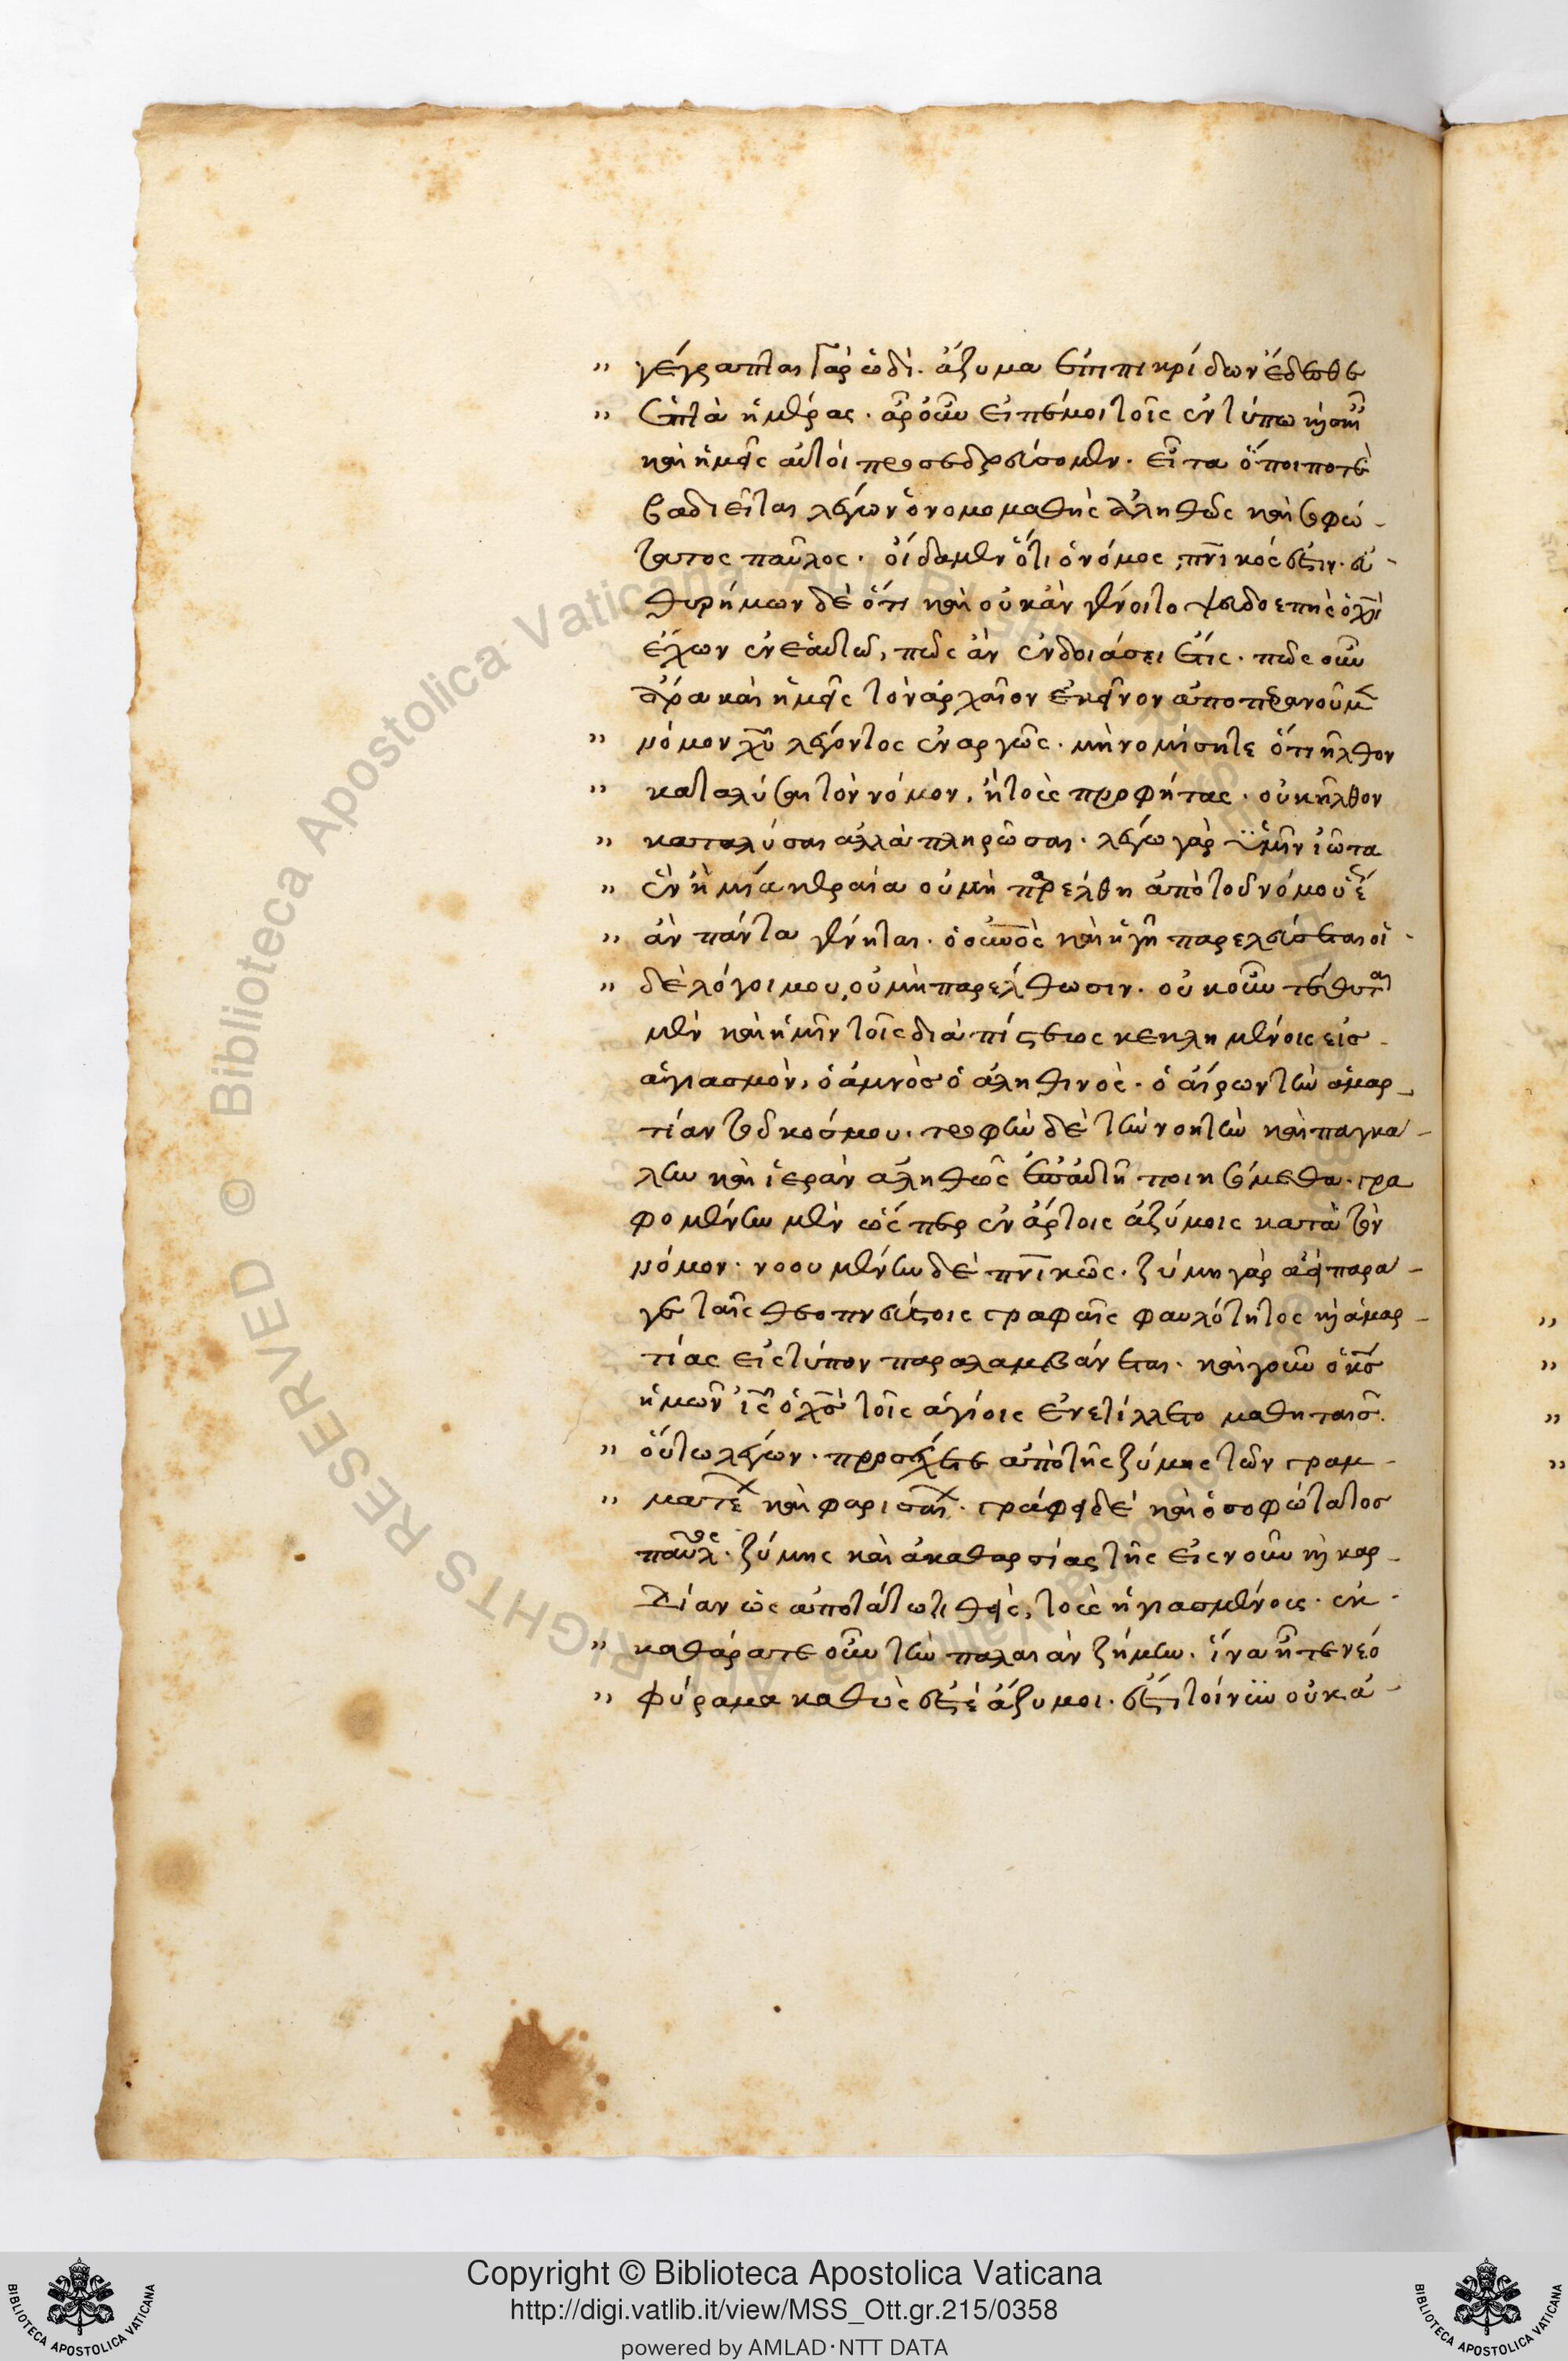 " γέγραπται γὰρ ὡδί. ἄζυμα ἐπὶ πικρίδων ἔδεσθε
" ἑπτὰ ἡμέρας. ἆρ' οὖν εἰπέ μοι τοῖς ἐν τύπῳ καὶ σκιᾷ
καὶ ἡμεῖς αὐτοὶ προσεδρεύσομεν. εἶτα ὅποι ποτὲ
βαδιεῖται λέγων ὁ νομομαθὴς ἀληθῶς καὶ σοφώ-
τατος παῦλος. οἴδαμεν ὅτι ὁ νόμος πνικός ἐστιν. εὐ-
θυρήμων δὲ ὅτι καὶ οὐκ ἂν γένοιτο ψευδοεπὴς ὁ χν
ἔχων ἐν ἑαυτῶ, πῶς ἂν ἐνδοιάσειέ τις. πῶς οὖν
ἄρα καὶ ἡμεῖς τὸν ἀρχαῖον ἐκεῖνον ἀποπερανοῦμεν
" νόμον χυ λέγοντος ἐναργῶς. μὴ νομίσητε ὅτι ἦλθον
" καταλύσαι τὸν νόμον, ἢ τοὺς προφήτας. οὐκ ἦλθον
" καταλύσαι ἀλλὰ πληρῶσαι. λέγω γὰρ ὑμῖν ἰῶτα
" ἓν ἢ μία κεραία οὐ μὴ παρέλθη ἀπὸ τοῦ νόμου ἕως
" ἂν πάντα γένηται. ὁ οὐνὸς καὶ ἡ γῆ παρελεύσεται οἱ
" δὲ λόγοι μου, οὐ μὴ παρέλθωσιν. οὐκοῦν τέθυται
μὲν καὶ ἡμῖν τοῖς διὰ πίστεως κεκλημένοις εἰς
ἁγιασμὸν, ὁ ἀμνὸς ὁ ἀληθινὸς. ὁ αἴρων τὴν ἁμαρ-
τίαν τοῦ κόσμου. τροφὴν δὲ τὴν νοητὴν καὶ παγκα-
λην καὶ ἱερὰν ἀληθῶς ἐπ' αὐτῆ ποιησόμεθα. γρα
φομένην μὲν ὥσπερ ἐν ἄρτοις ἀζύμοις κατὰ τὸν
νόμον. νοουμένην δὲ πνικῶς. ζύμη γὰρ ἀεὶ παρα-
γε ταῖς θεοπνεύστοις γραφαῖς φαυλότητος καὶ ἁμαρ-
τίας εἰς τύπον παραλαμβάνεται. καὶ γοῦν ὁ κς
ἡμῶν ις ὁ χς τοῖς ἁγίοις ἐνετέλλετο μαθηταῖς.
" οὕτω λέγων. προσέχετε ἀπὸ τῆς ζύμης τῶν γραμ-
" ματέων καὶ φαρισαίων. γράφει δὲ καὶ ὁ σοφώτατος
παῦλος. ζύμης καὶ ἀκαθαρσίας τῆς εἰς νοῦν καὶ καρ-
δίαν ὡς ἀπωτάτω τιθεὶς, τοὺς ἡγιασμένους. ἐκ-
" καθάρατε οὖν τὴν παλαιὰν ζύμην. ἵνα ἦτε νέον
" φύραμα καθώς ἐστε ἄζυμοι. ἔστι τοίνυν οὐκ ἀ-
Copyright © Biblioteca Apostolica Vaticana
http://digi.vatlib.it/view/MSS_Ott.gr.215/0358
powered by AMLAD·NTT DATA
BIBLIOTECA APOSTOLICA VATICANA
BIBLIOTECA APOSTOLICA VATICANA